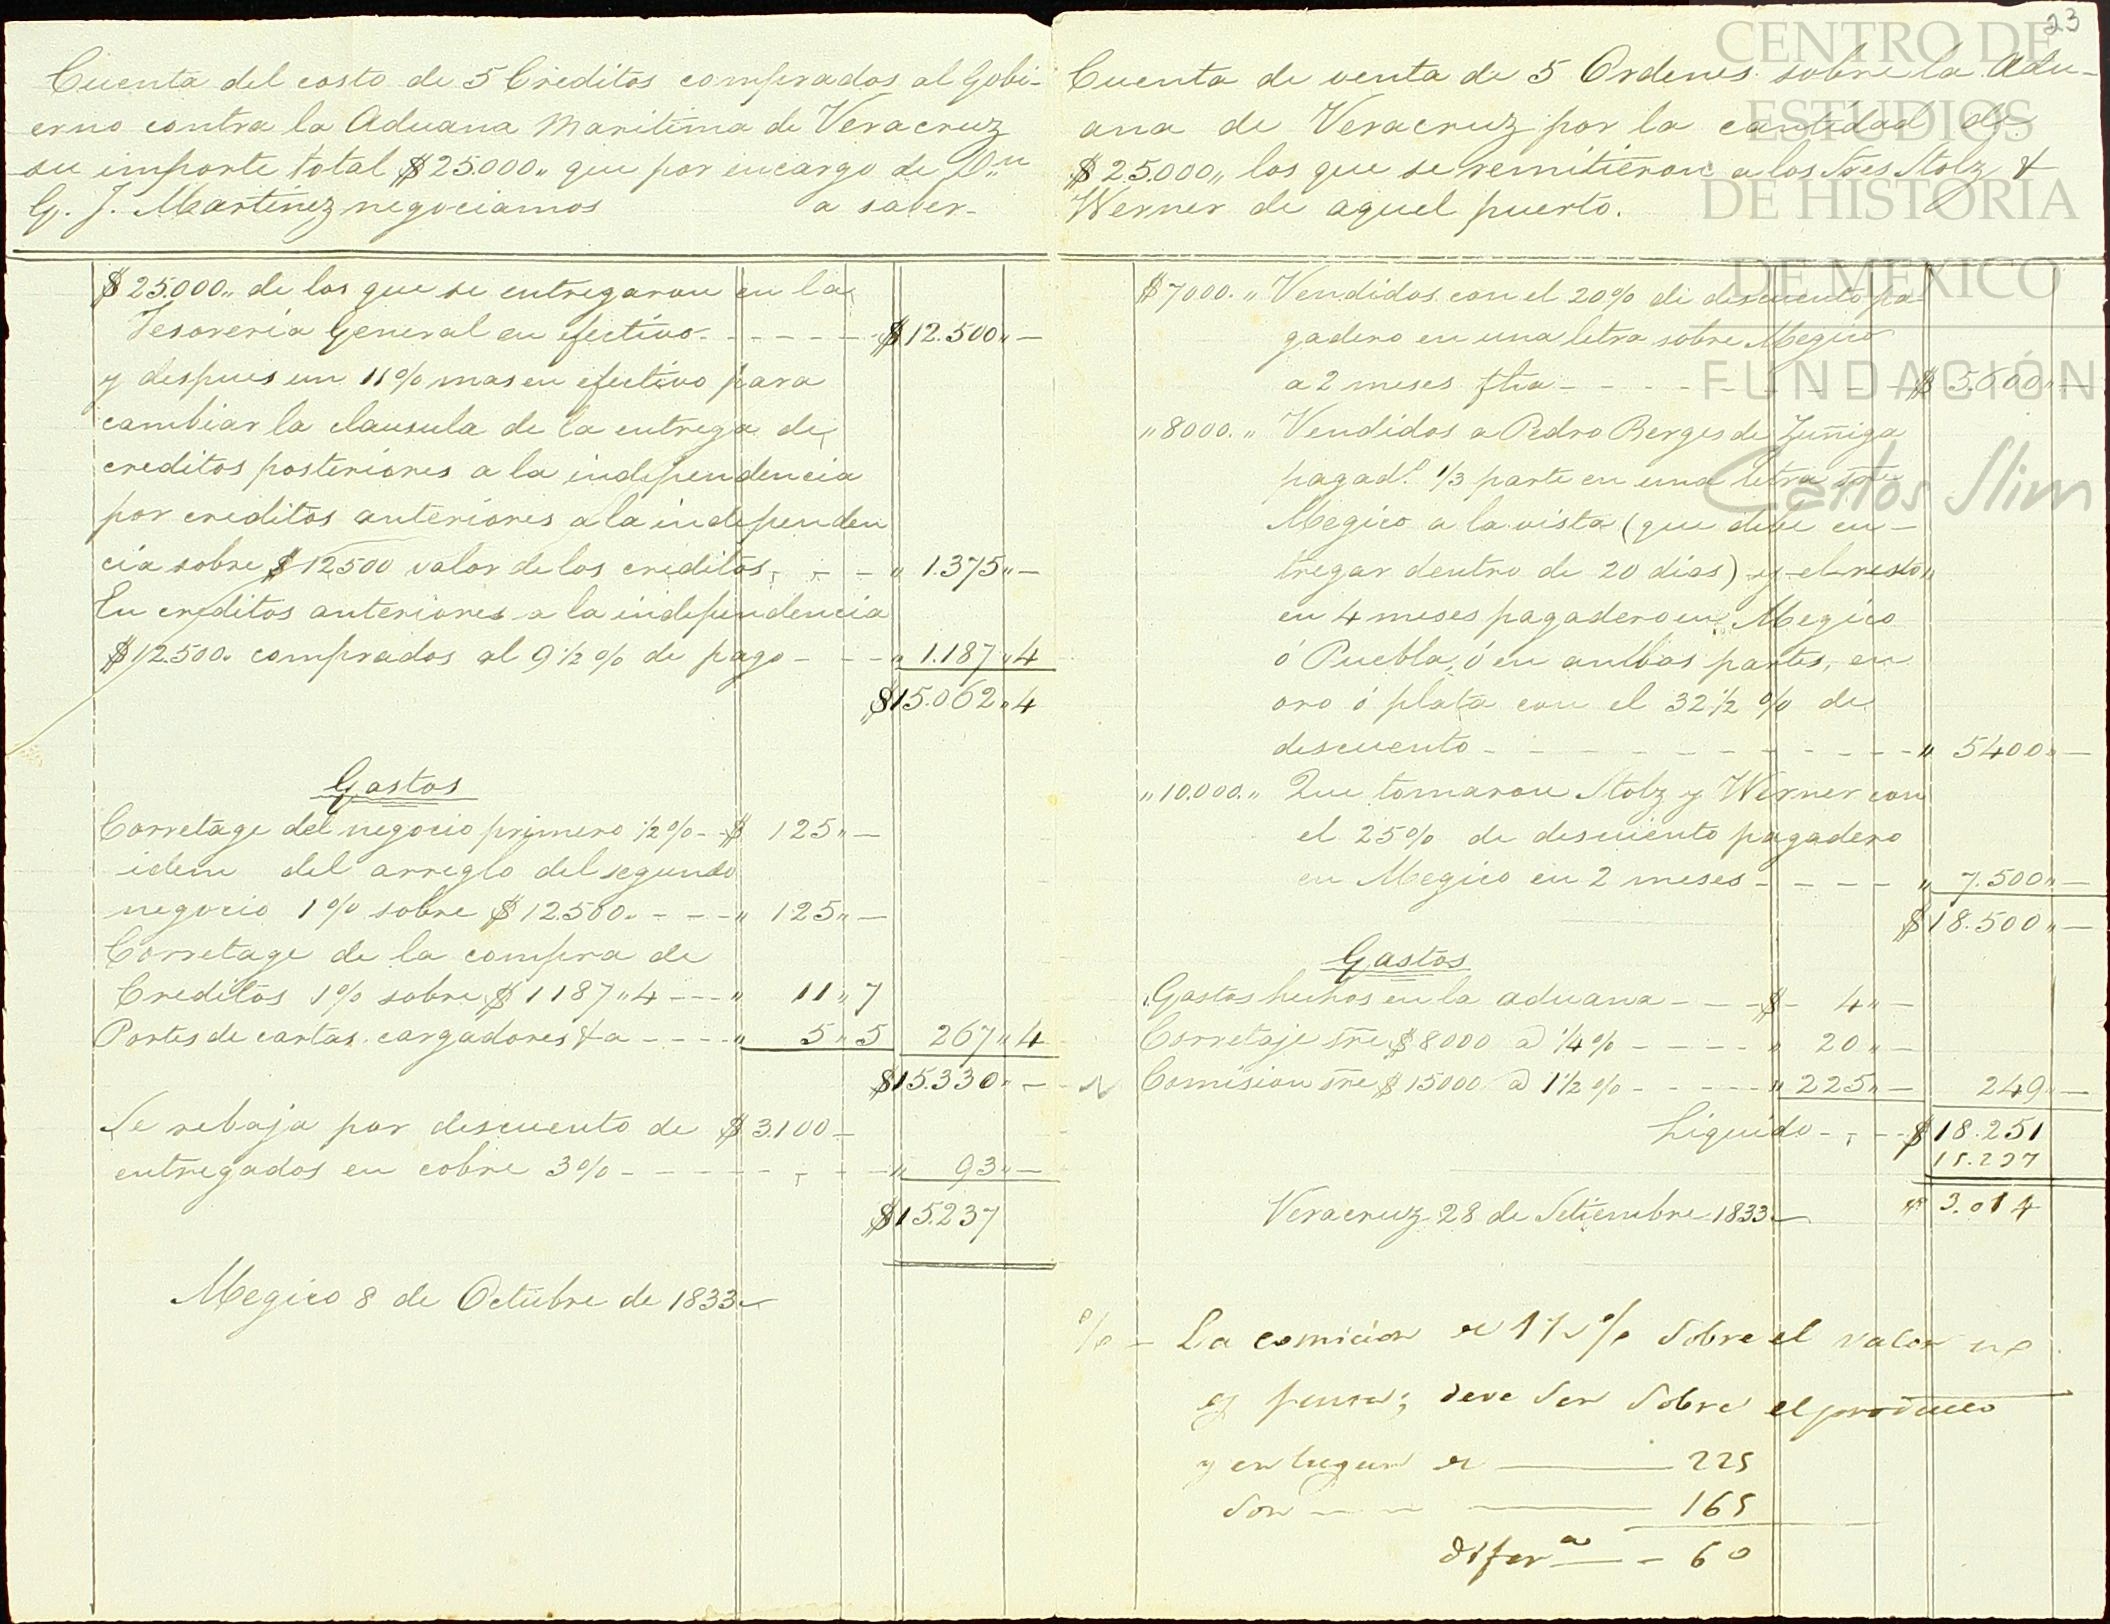 Cuenta del costo de 5 Creditos comprados al Gobi-
erno contra la Aduana Maritima de Veracruz
su importe total $25.000„ que por encargo de Dn
G. J. Martinez negociamos a saber-
$25.000„ de los que se entregaron en la
Tesoreria General en efectivo - - - - - $12.500„ —
y despues un 11% mas en efectivo para
cambiar la clausula de la entrega de
creditos posteriores a la independencia
por creditos anteriores a la independen
cia sobre $12500 valor de los creditos - - - „ 1.375„ —
En creditos anteriores a la independencia
$12.500. comprados al 9 1/2 % de pago - - - „ 1.187„4
$15.062„4
Gastos
Corretage del negocio primero 1/2 % - - $ 125„ —
idem del arreglo del segundo
negocio 1% sobre $12.500. - - - „ 125„ —
Corretage de la compra de
Creditos 1% sobre $1187„4 - - - „ 11„7
Portes de cartas. cargadores &a - - - - „ 5„5 267„4
$15.330„ —
Se rebaja por descuento de $3.100 —
entregados en cobre 3% - - - - - - - - „ 93„ —
$15.237
Megico 8 de Octubre de 1833
23
Cuenta de venta de 5 Ordenes sobre la Adu-
ana de Veracruz por la cantidad de
$25.000„ los que se remitieron a los Sres Stolz &
Werner de aquel puerto.
$7000. „ Vendidos con el 20% de descuento pa-
gadero en una letra sobre Megico
a 2 meses fha - - - - - - - - $ 5.600„ —
„ 8000. „ Vendidos a Pedro Berges de Zuñiga
pagad.o 1/3 parte en una letra sre
Megico a la vista (que debe en-
tregar dentro de 20 dias) y el resto„
en 4 meses pagadero en Megico
ó Puebla, ó en ambas partes, en
oro ó plata con el 32 1/2 % de
descuento - - - - - - - - - - „ 5400„ —
„ 10.000. „ Que tomaron Stolz y Werner con
el 25% de descuento pagadero
en Megico en 2 meses - - - - - „ 7.500„ —
$18.500„ —
Gastos
Gastos hechos en la aduana - - - - $ 4„ —
Corretaje sre $8000 a 1/4 % - - - - „ 20„ —
Comision sre $15000 a 1 1/2 % - - - - - „ 225„ — 249„ —
Liquido - - - - $18.251
15.237
Veracruz 28 de Setiembre 1833 $ 3.014
% - La comicion de 1 1/2 % Sobre el valor no
deve Ser Sobre el producto
y en lugar de ——— 225
Son — — ——— 165
difera — — 60
CENTRO DE
ESTUDIOS
DE HISTORIA
DE MEXICO
FUNDACIÓN
Carlos Slim